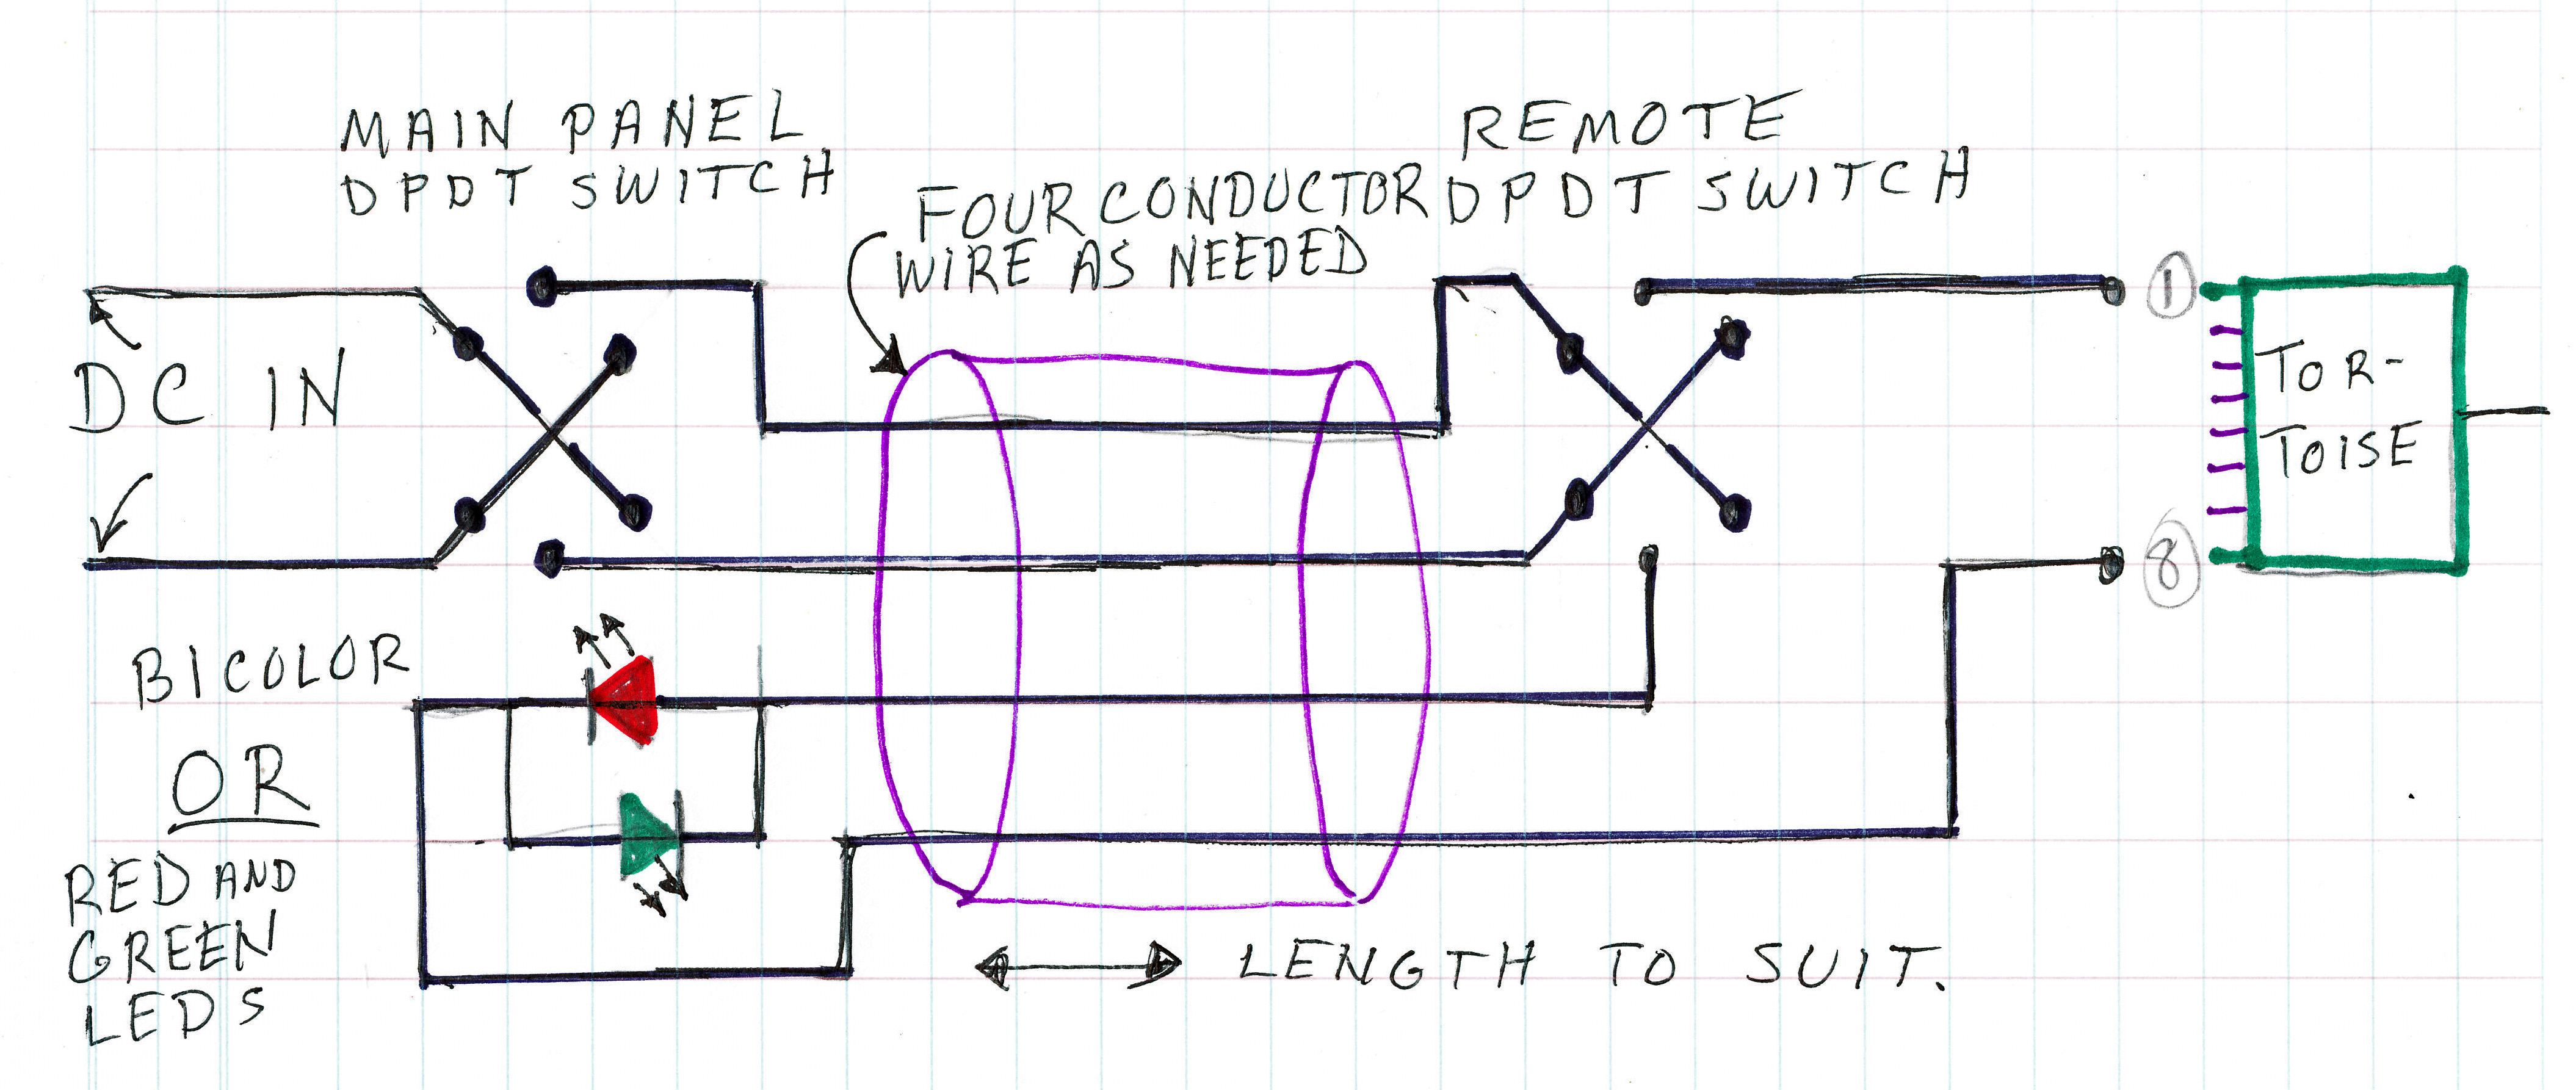 MAIN PANEL
DPDT SWITCH
FOUR CONDUCTOR
WIRE AS NEEDED
REMOTE
DPDT SWITCH
DC IN
1
8
TOR-
TOISE
BICOLOR
OR
RED AND
GREEN
LEDS
LENGTH TO SUIT.